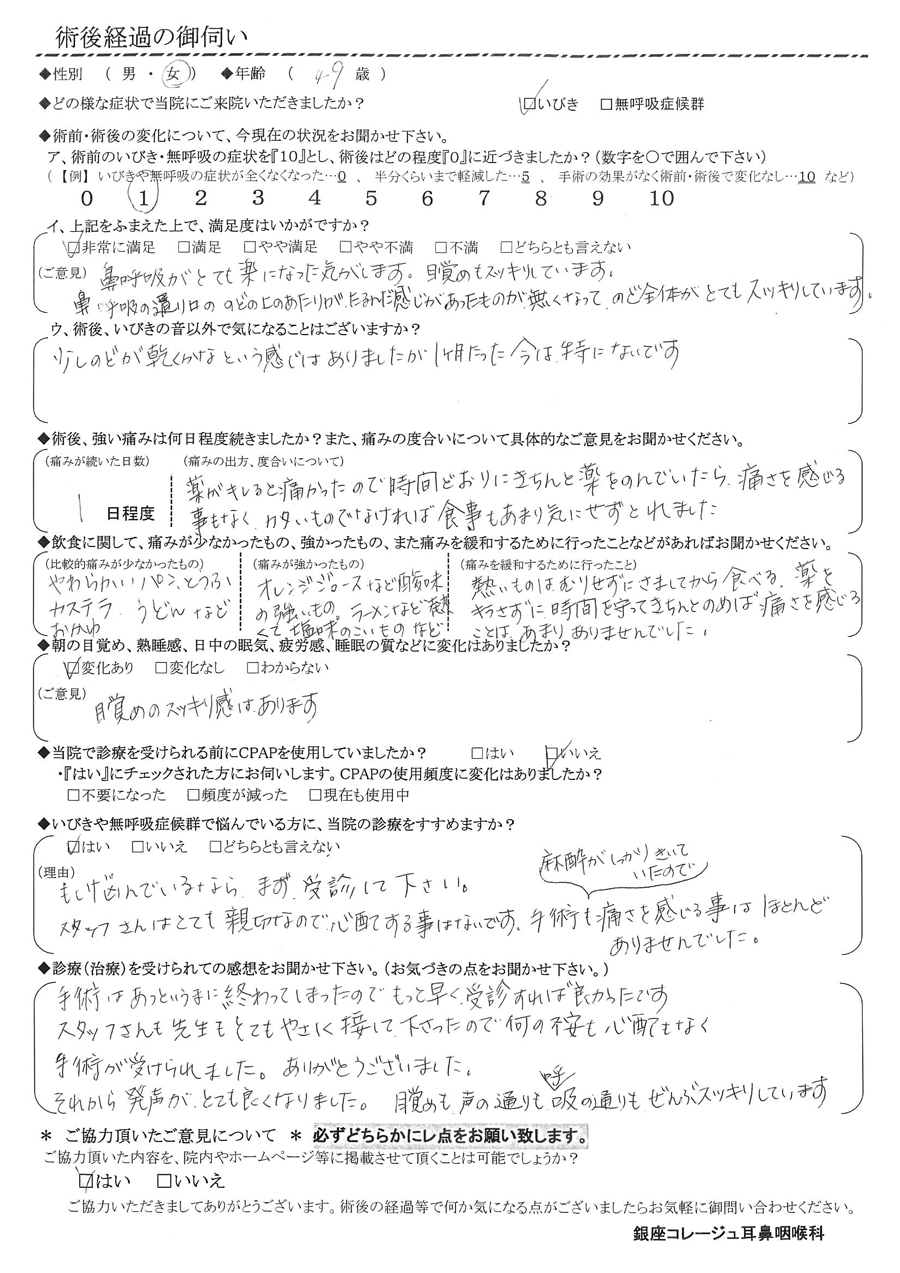 術後経過の御伺い
◆性別 ( 男 ・ 女 ) ◆年齢 ( 49 歳 )
◆どの様な症状で当院にご来院いただきましたか? ☑いびき □無呼吸症候群
◆術前・術後の変化について、今現在の状況をお聞かせ下さい。
ア、術前のいびき・無呼吸の症状を『10』とし、術後はどの程度『0』に近づきましたか?(数字を〇で囲んで下さい)
(【例】いびきや無呼吸の症状が全くなくなった…0 、 半分くらいまで軽減した…5 、 手術の効果がなく術前・術後で変化なし…10 など)
0 1 2 3 4 5 6 7 8 9 10
イ、上記をふまえた上で、満足度はいかがですか?
☑非常に満足 □満足 □やや満足 □やや不満 □不満 □どちらとも言えない
(ご意見) 鼻呼吸がとても楽になった気がします。目覚めもスッキリしています。
鼻呼吸の通り口ののどの上のあたりがたるんだ感じがあったものが無くなってのど全体がとてもスッキリしています。
ウ、術後、いびきの音以外で気になることはございますか?
少しのどが乾くかなという感じはありましたが1ヶ月たった今は特にないです
◆術後、強い痛みは何日程度続きましたか?また、痛みの度合いについて具体的なご意見をお聞かせください。
(痛みが続いた日数) (痛みの出方、度合いについて)
薬がキレると痛かったので時間どおりにきちんと薬をのんでいたら痛さを感じる
1 日程度 事もなく、カタいものでなければ食事もあまり気にせずとれました
◆飲食に関して、痛みが少なかったもの、強かったもの、また痛みを緩和するために行ったことなどがあればお聞かせください。
(比較的痛みが少なかったもの) (痛みが強かったもの) (痛みを緩和するために行ったこと)
やわらかいパン、とうふ
カステラ、うどんなど
おかゆ
オレンジジュースなど酸味
の強いもの。ラーメンなど熱
くて塩味のこいものなど
熱いものはむりせずにさましてから食べる。薬を
キラさずに時間を守ってきちんとのめば痛さを感じる
ことはあまりありませんでした。
◆朝の目覚め、熟睡感、日中の眠気、疲労感、睡眠の質などに変化はありましたか?
☑変化あり □変化なし □わからない
(ご意見) 目覚めのスッキリ感はあります
◆当院で診療を受けられる前にCPAPを使用していましたか? □はい ☑いいえ
・『はい』にチェックされた方にお伺いします。CPAPの使用頻度に変化はありましたか?
□不要になった □頻度が減った □現在も使用中
◆いびきや無呼吸症候群で悩んでいる方に、当院の診療をすすめますか?
☑はい □いいえ □どちらとも言えない
(理由) もし悩んでいるなら、まず受診して下さい。
麻酔がしっかりきいて
いたので
スタッフさんはとても親切なので心配する事はないです。手術も痛さを感じる事はほとんど
ありませんでした。
◆診療(治療)を受けられての感想をお聞かせ下さい。(お気づきの点をお聞かせ下さい。)
手術はあっというまに終わってしまったのでもっと早く受診すれば良かったです
スタッフさんも先生もとてもやさしく接して下さったので何の不安も心配もなく
手術が受けられました。ありがとうございました。
それから発声がとても良くなりました。目覚めも声の通りも呼吸の通りもぜんぶスッキリしています
* ご協力頂いたご意見について * 必ずどちらかにレ点をお願い致します。
ご協力頂いた内容を、院内やホームページ等に掲載させて頂くことは可能でしょうか?
☑はい □いいえ
ご協力いただきましてありがとうございます。術後の経過等で何か気になる点がございましたらお気軽に御問い合わせください。
銀座コレージュ耳鼻咽喉科